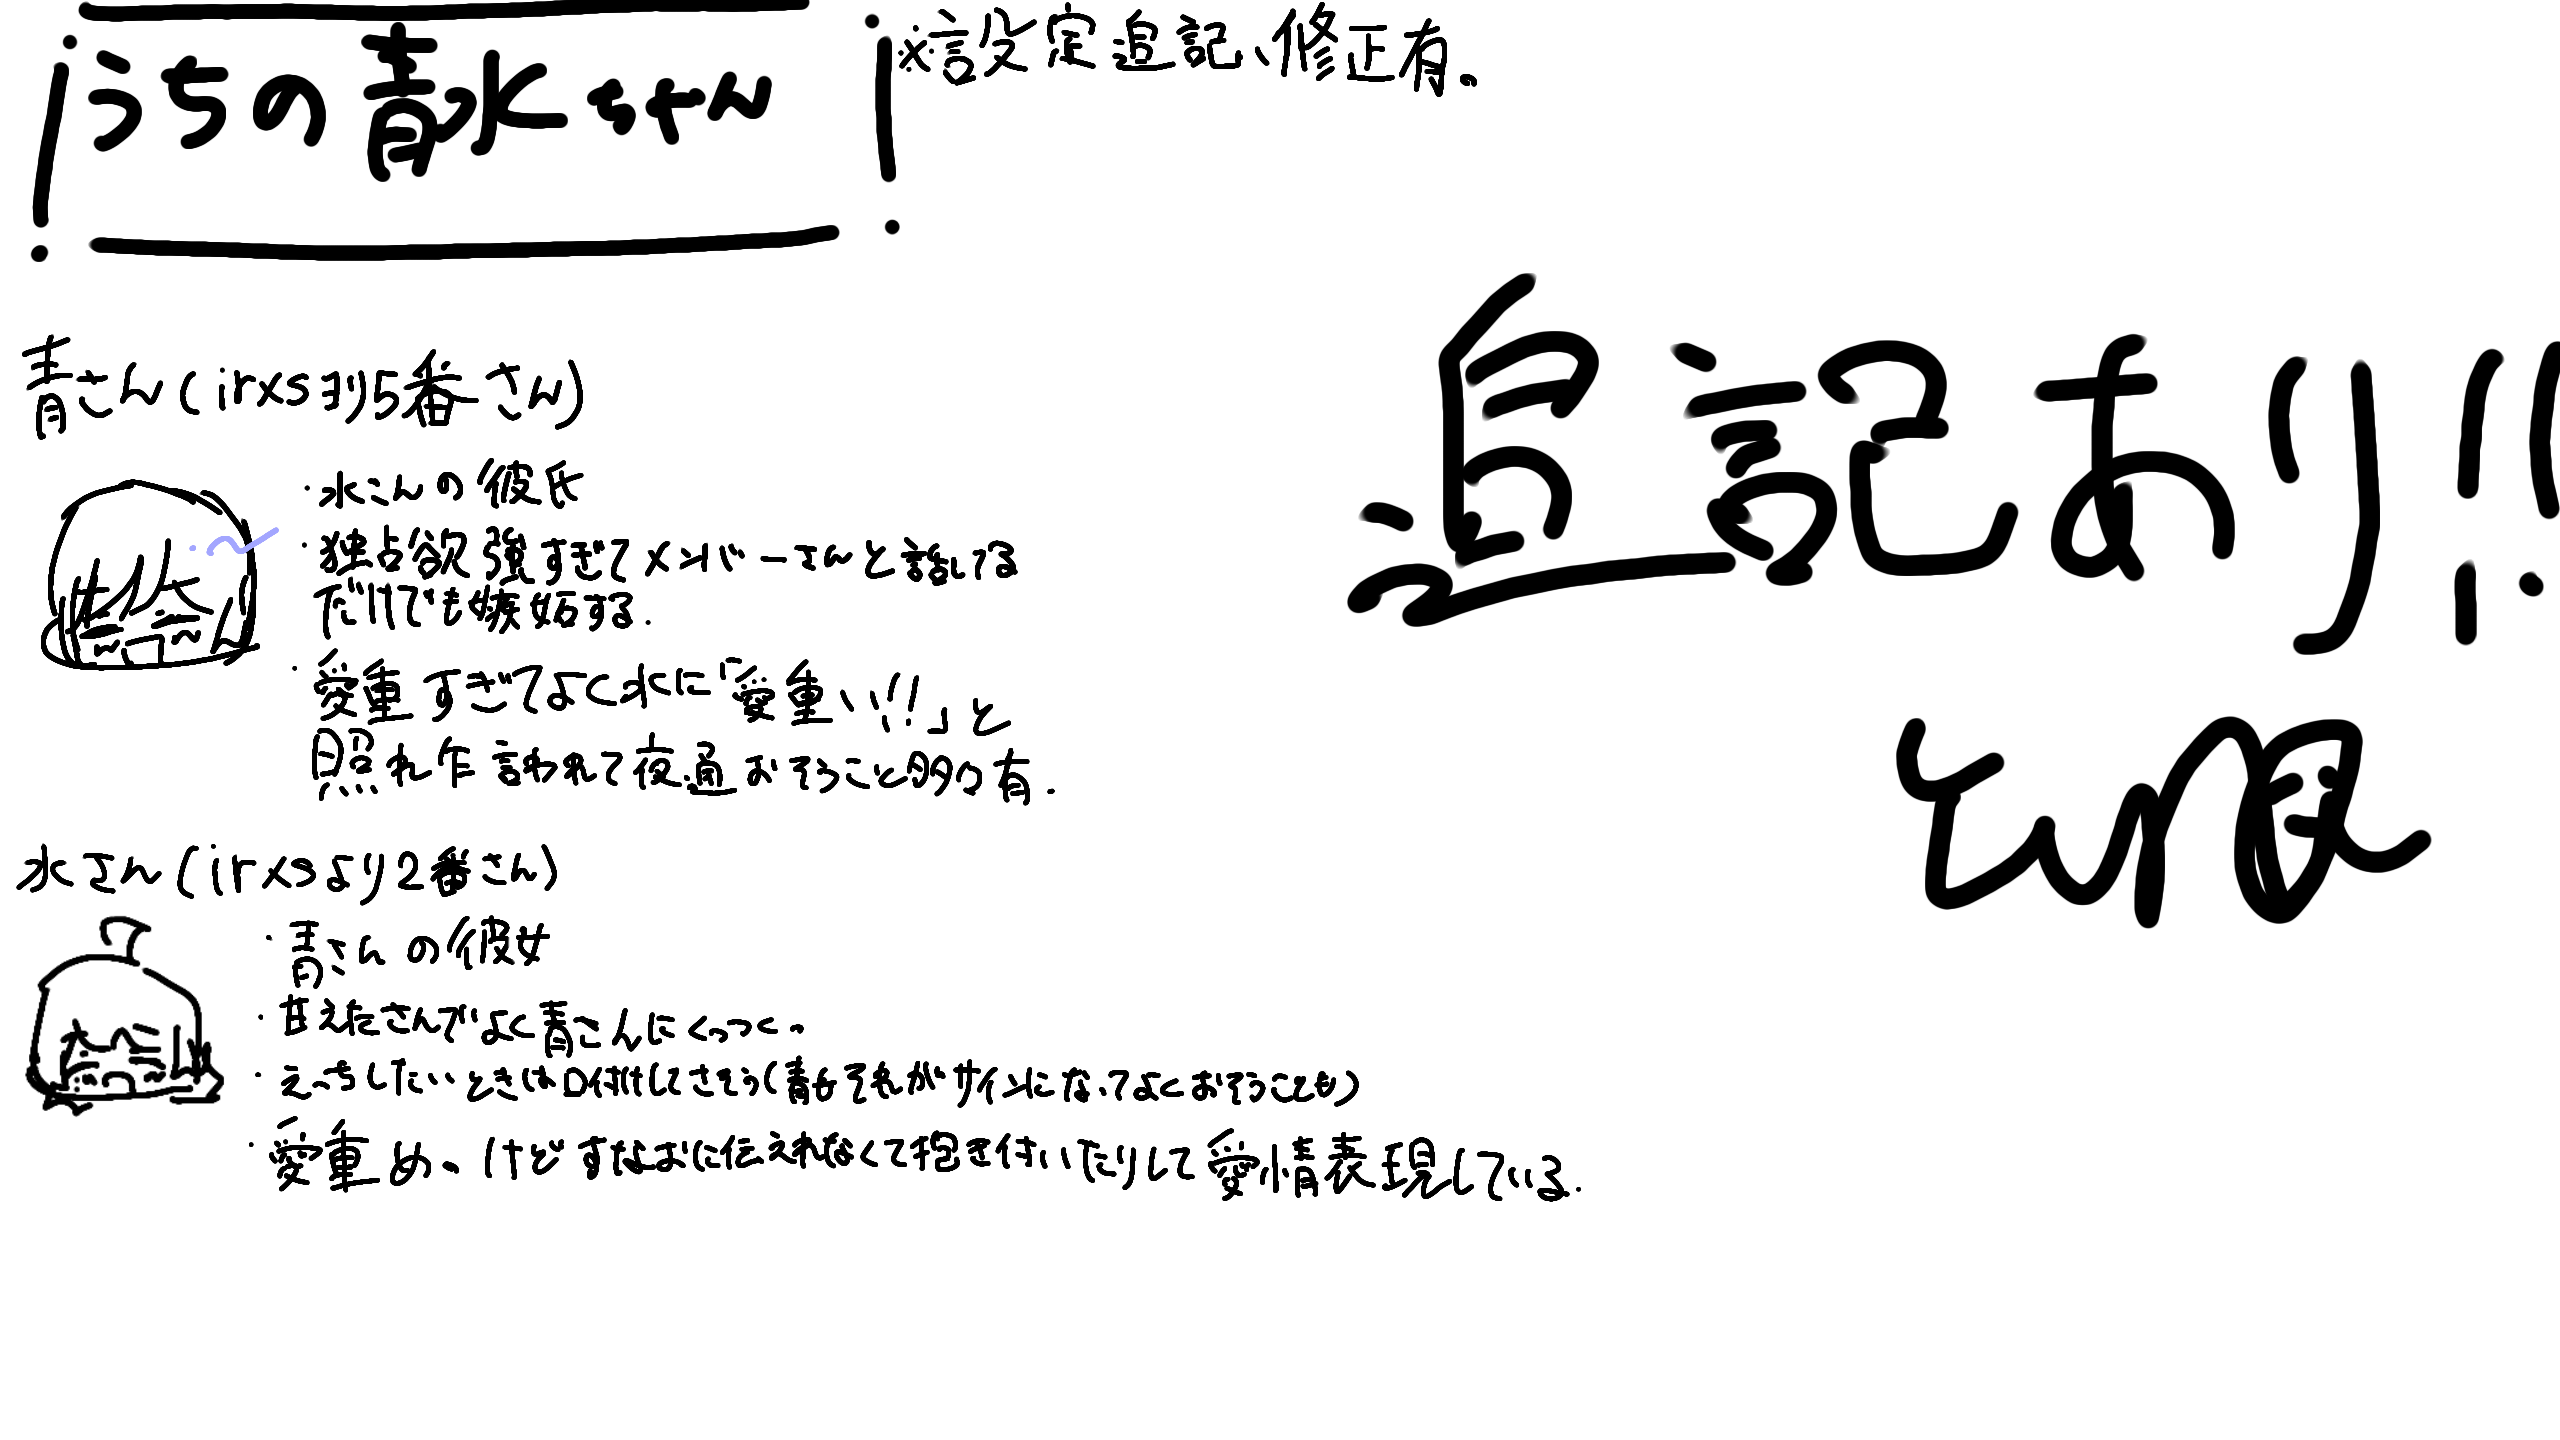 うちの青水ちゃん
※設定追記、修正有。
追記あり!!
青さん(irxsより5番さん)
・水さんの彼氏
・独占欲強すぎてメンバーさんと話してる
だけでも嫉妬する.
・愛重すぎてよく水に「愛重い!!」と
照れ乍言われて夜通おそうこと多々有.
水さん(irxsより2番さん)
・青さんの彼女
・甘えたさんでよく青さんにくっつく。
・えっちしたいときは口付けしてさそう(青もそれがサインになってよくおそうことも)
・愛重め。けどすなおに伝えれなくて抱き付いたりして愛情表現している.